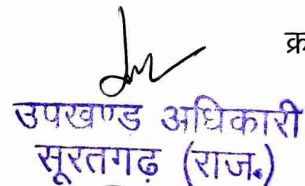 क्र
उपखण्ड अधिकारी
सूरतगढ़ (राज.)